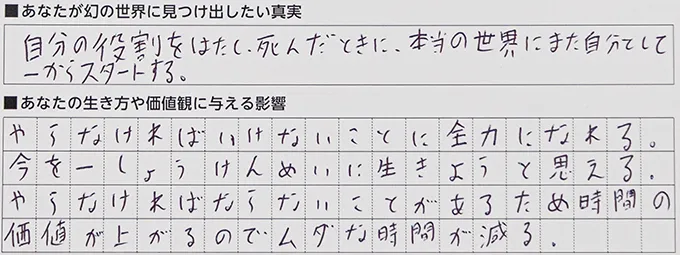 ■あなたが幻の世界に見つけ出したい真実
自分の役割をはたし、死んだときに、本当の世界にまた自分として
一からスタートする。
■あなたの生き方や価値観に与える影響
やらなければいけないことに全力になれる。
今を一しょうけんめいに生きようと思える。
やらなければならないことがあるため時間の
価値が上がるのでムダな時間が減る。